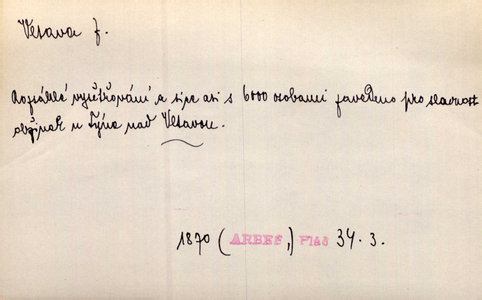 Vltava f.
Rozsáhlé vyšetřování a sice asi s 6000 osobami zavedeno pro slavnost
obžínek u Týna nad Vltavou.
1870 (ARBES,) Pláč 34. 3.